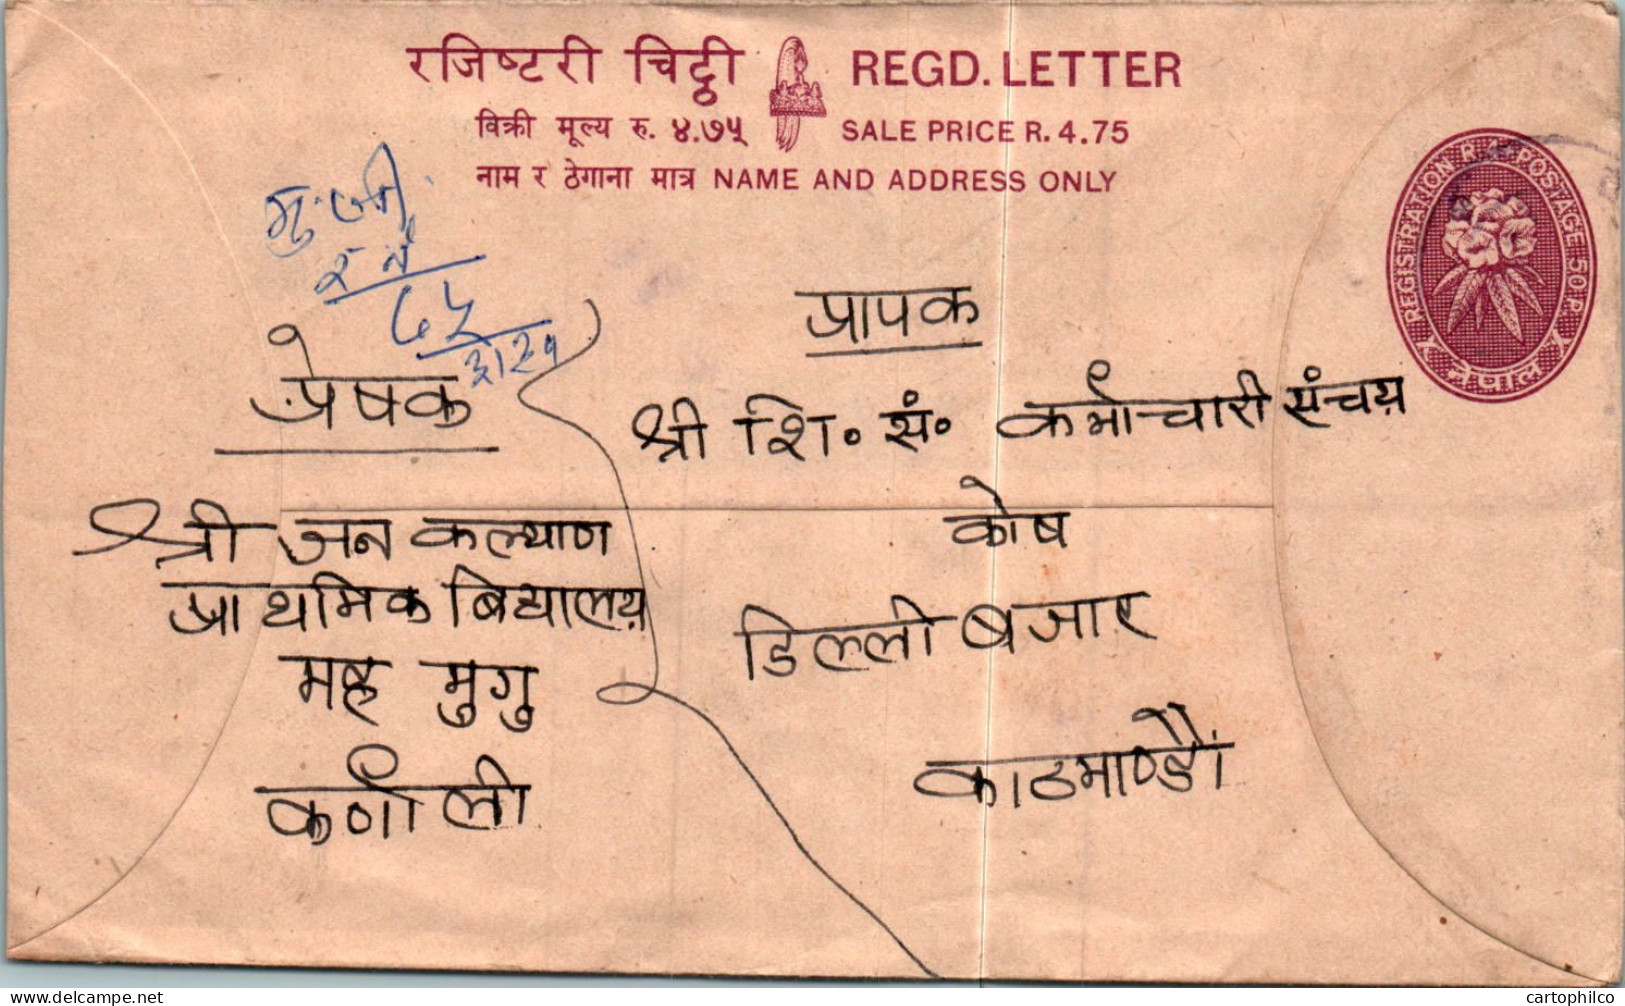 रजिष्टरी चिठ्ठी REGD. LETTER
विक्री मूल्य रु. ४.७५ SALE PRICE R. 4.75
नाम र ठेगाना मात्र NAME AND ADDRESS ONLY
REGISTRATION R. 4. POSTAGE 50 P.
नेपाल
८५
३।२१
प्रापक
श्री शि. सं. कर्मचारी संचय
कोष
डिल्ली बजार
काठमाण्डौं
प्रेषक
श्री जन कल्याण
प्राथमिक बिद्यालय
मुगु
कर्णाली
delcampe.net
cartophilco